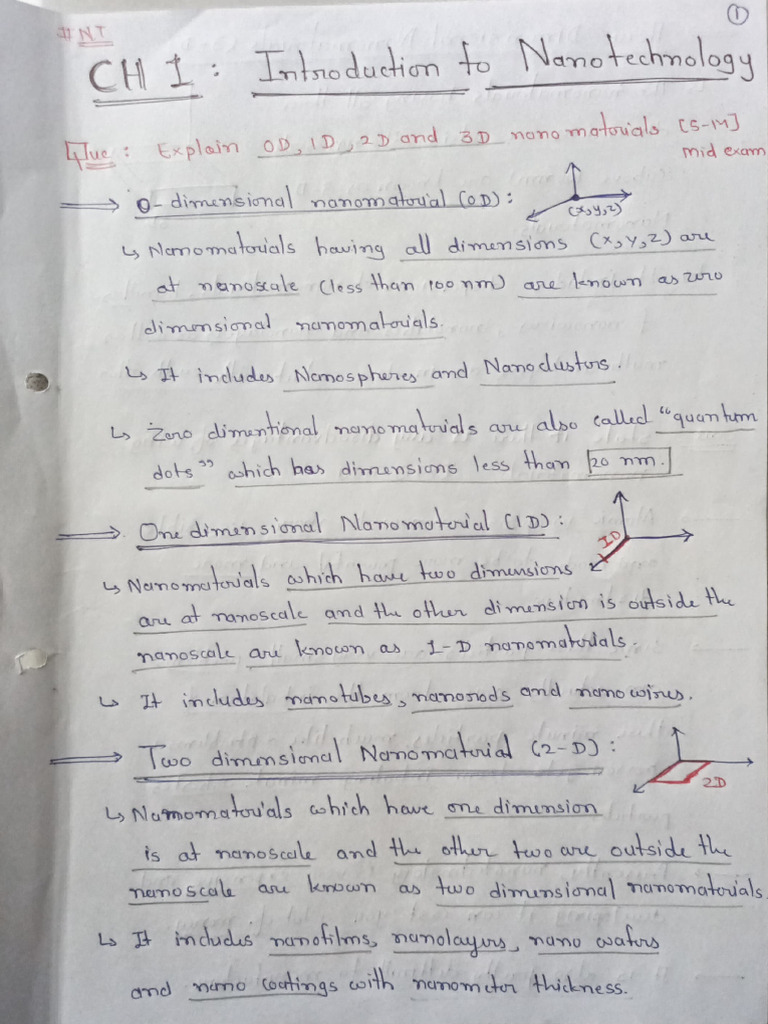 ①
# NT
CH 1 : Introduction to Nanotechnology
Que : Explain 0D, 1D, 2D and 3D nanomaterials [5-M]
mid exam
⇒ 0-dimensional nanomaterial (0D) :
(x,y,z)
↳ Nanomaterials having all dimensions (x,y,z) are
at nanoscale (less than 100 nm) are known as zero
dimensional nanomaterials.
↳ It includes Nanospheres and Nanoclusters.
↳ Zero dimentional nanomaterials are also called "quantum
dots" which has dimensions less than 20 nm.
⇒ One dimensional Nanomaterial (1D) :
1D
↳ Nanomaterials which have two dimensions
are at nanoscale and the other dimension is outside the
nanoscale are known as 1-D nanomaterials.
↳ It includes nanotubes, nanorods and nanowires.
⇒ Two dimensional Nanomaterial (2-D) :
2D
↳ Nanomaterials which have one dimension
is at nanoscale and the other two are outside the
nanoscale are known as two dimensional nanomaterials.
↳ It includes nanofilms, nanolayers, nano wafers
and nano coatings with nanometer thickness.